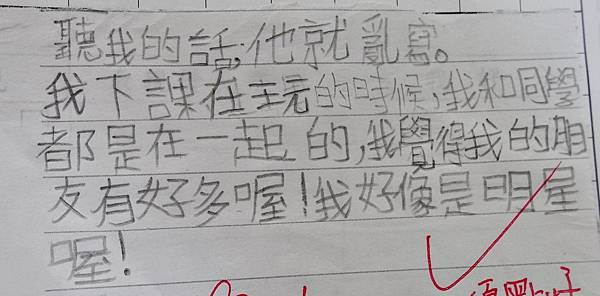 聽我的話,他就亂寫。
我下課在玩的時候,我和同學
都是在一起的,我覺得我的朋
友有好多喔!我好像是明星
喔!